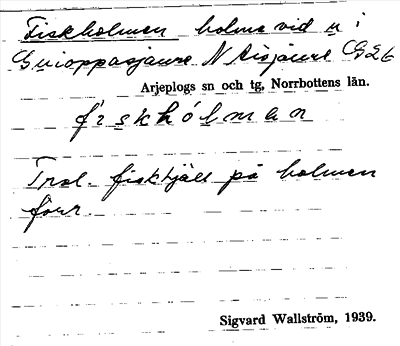 Fiskholmen holme vid n i
Guioppasjaure N Aisjaure G26
Arjeplogs sn och tg, Norrbottens län.
fiskhólman
Trol. fisktjäll på holmen
förr.
Sigvard Wallström, 1939.